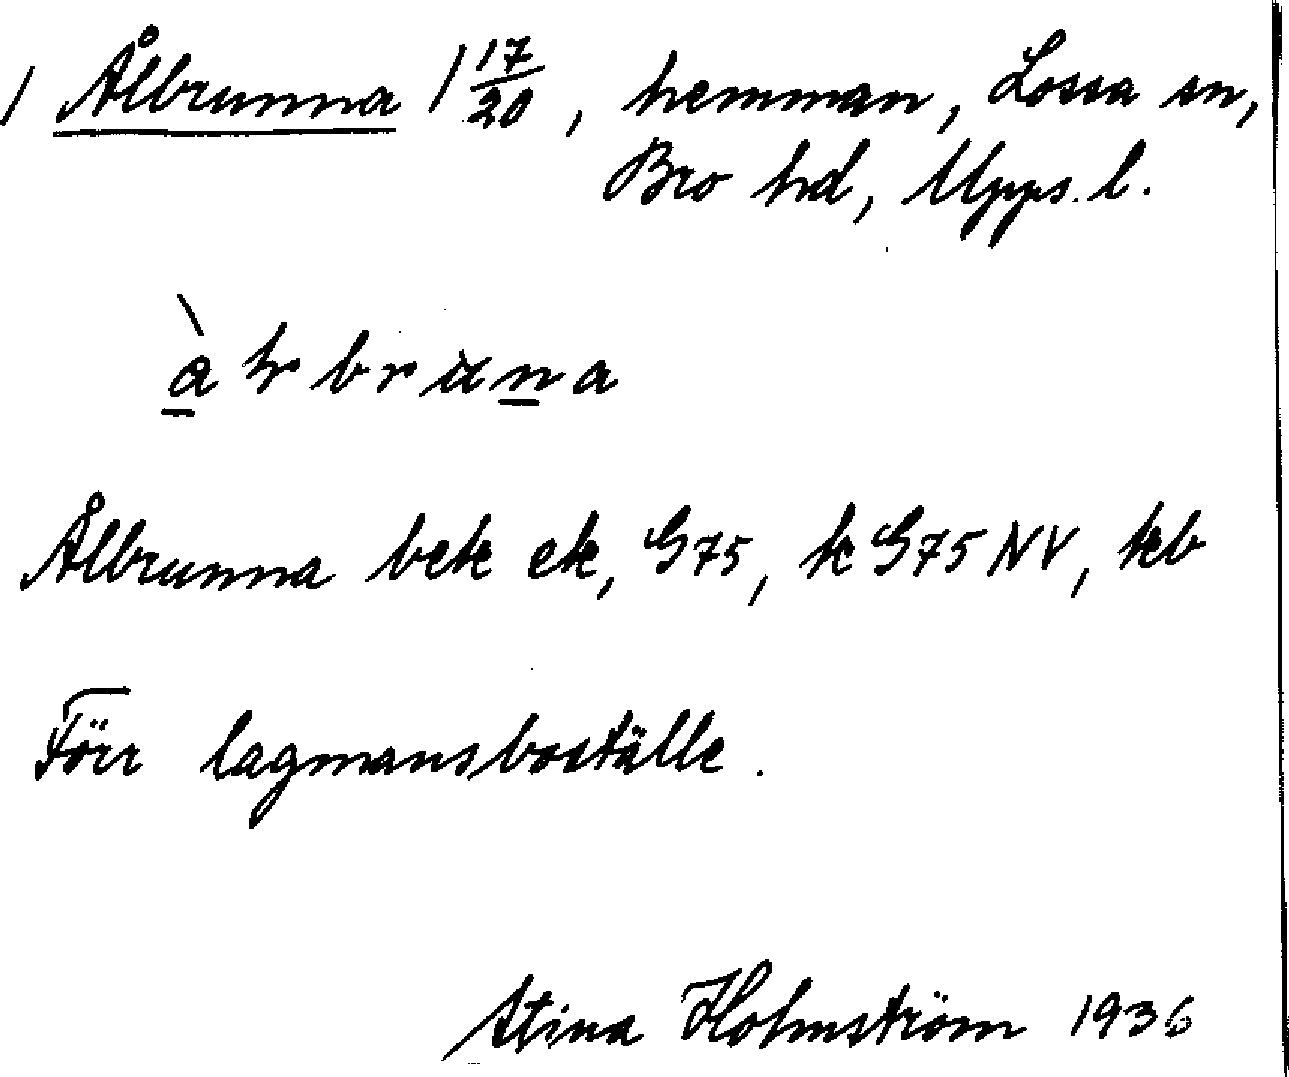 / Ålbrunna 1 17/20, hemman, Lossa sn,
Bro hd, Upps. l.
Ålbrunna bek ek, G75, k G75 NV, kb
Förr lagmansboställe.
Stina Holmström 1936